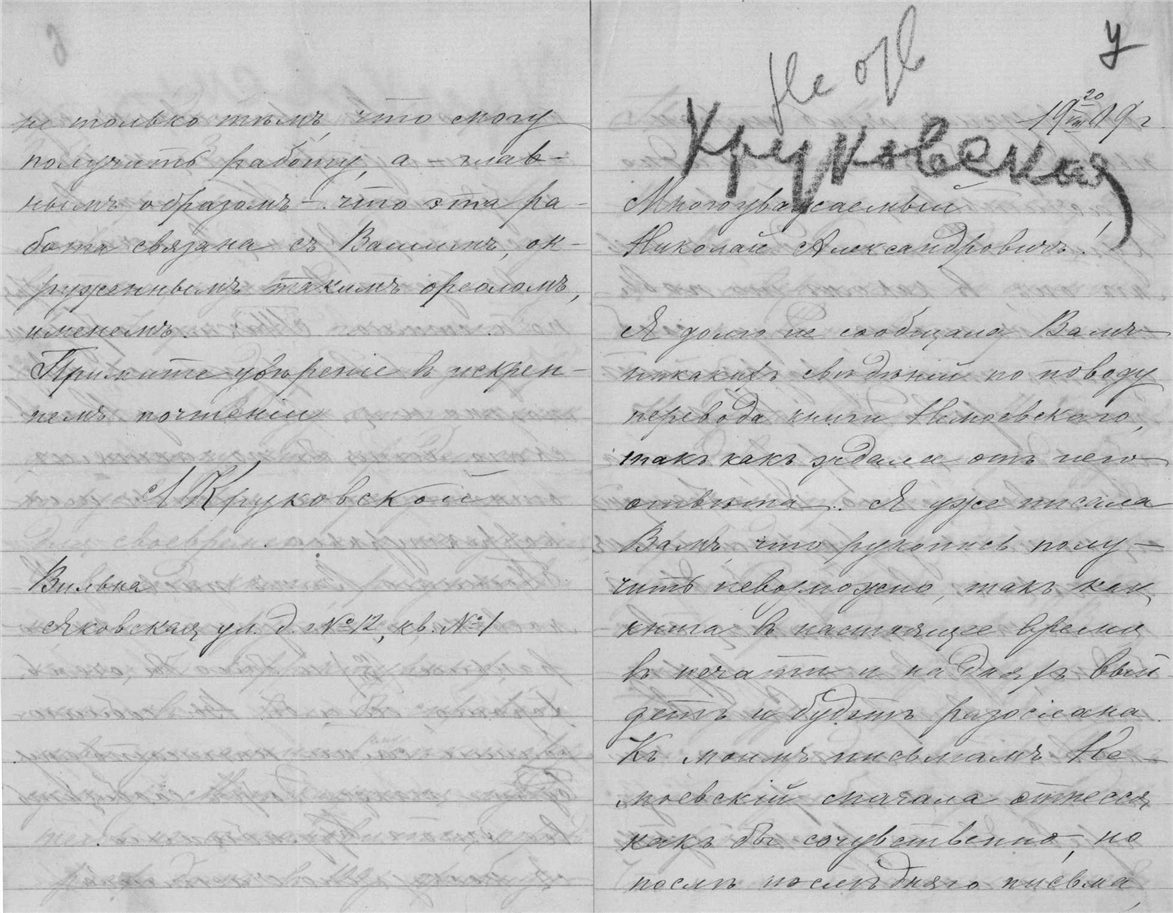 не только тѣмъ, что могу
получить работу, а глав-
нымъ образомъ – что эта ра-
бота связана съ Вашимъ, ок-
руженнымъ такимъ ореоломъ,
именемъ.
Примите увѣреніе въ искрен-
немъ почтеніи
А Круковской
Вильна
ул. д. № 12, кв. № 1
у
Не отв
Круковская
Многоуважаемый
Николай Александровичъ.
Я долго не сообщала Вамъ
никакихъ свѣдѣній по поводу
перевода книги Немоевскаго,
такъ какъ ждала отъ него
отвѣта. Я уже писала
Вамъ, что рукопись полу-
чить невозможно, такъ как
книга въ настоящее время
въ печати и на дняхъ вый
детъ и будетъ разослана.
Къ моимъ письмамъ Не-
моевскій сначала отнесся
какъ бы сочувственно, но
послѣ послѣдняго письма,